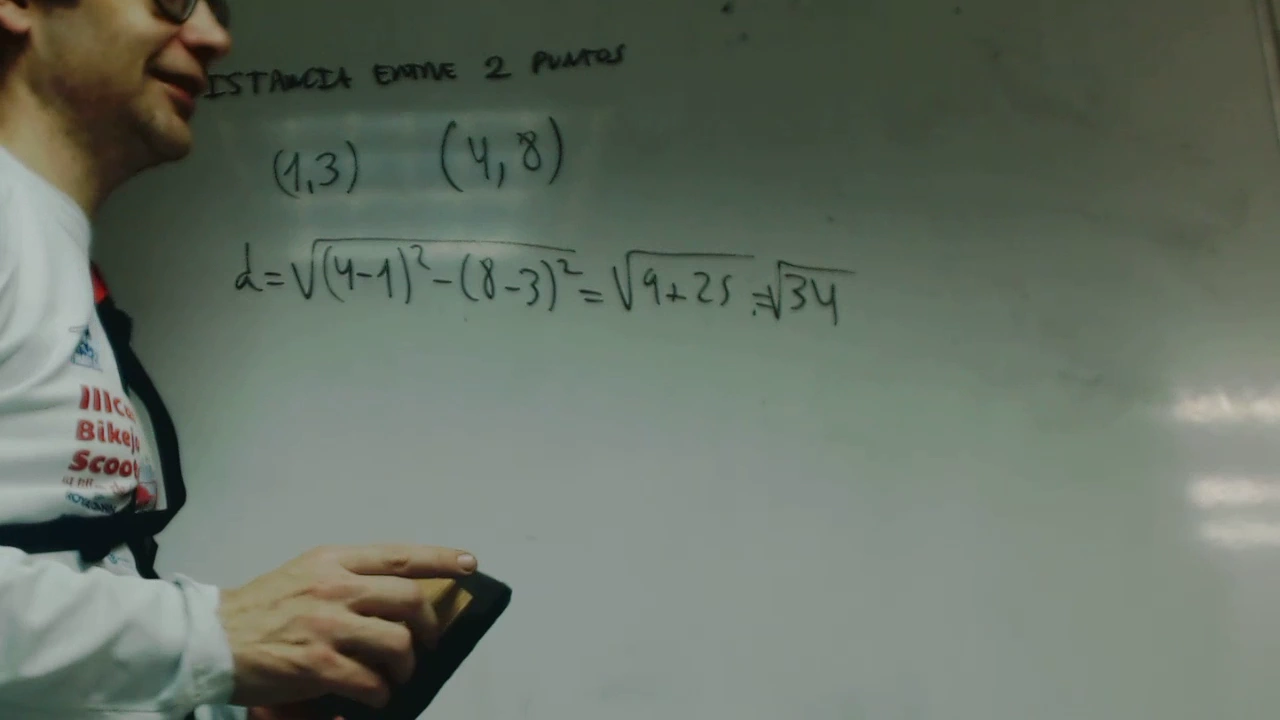 ISTANCIA ENTRE 2 PUNTOS
(1,3) (4,8)
d=√(4-1)²-(8-3)² = √9+25 = √34
Bikejo
Scoot